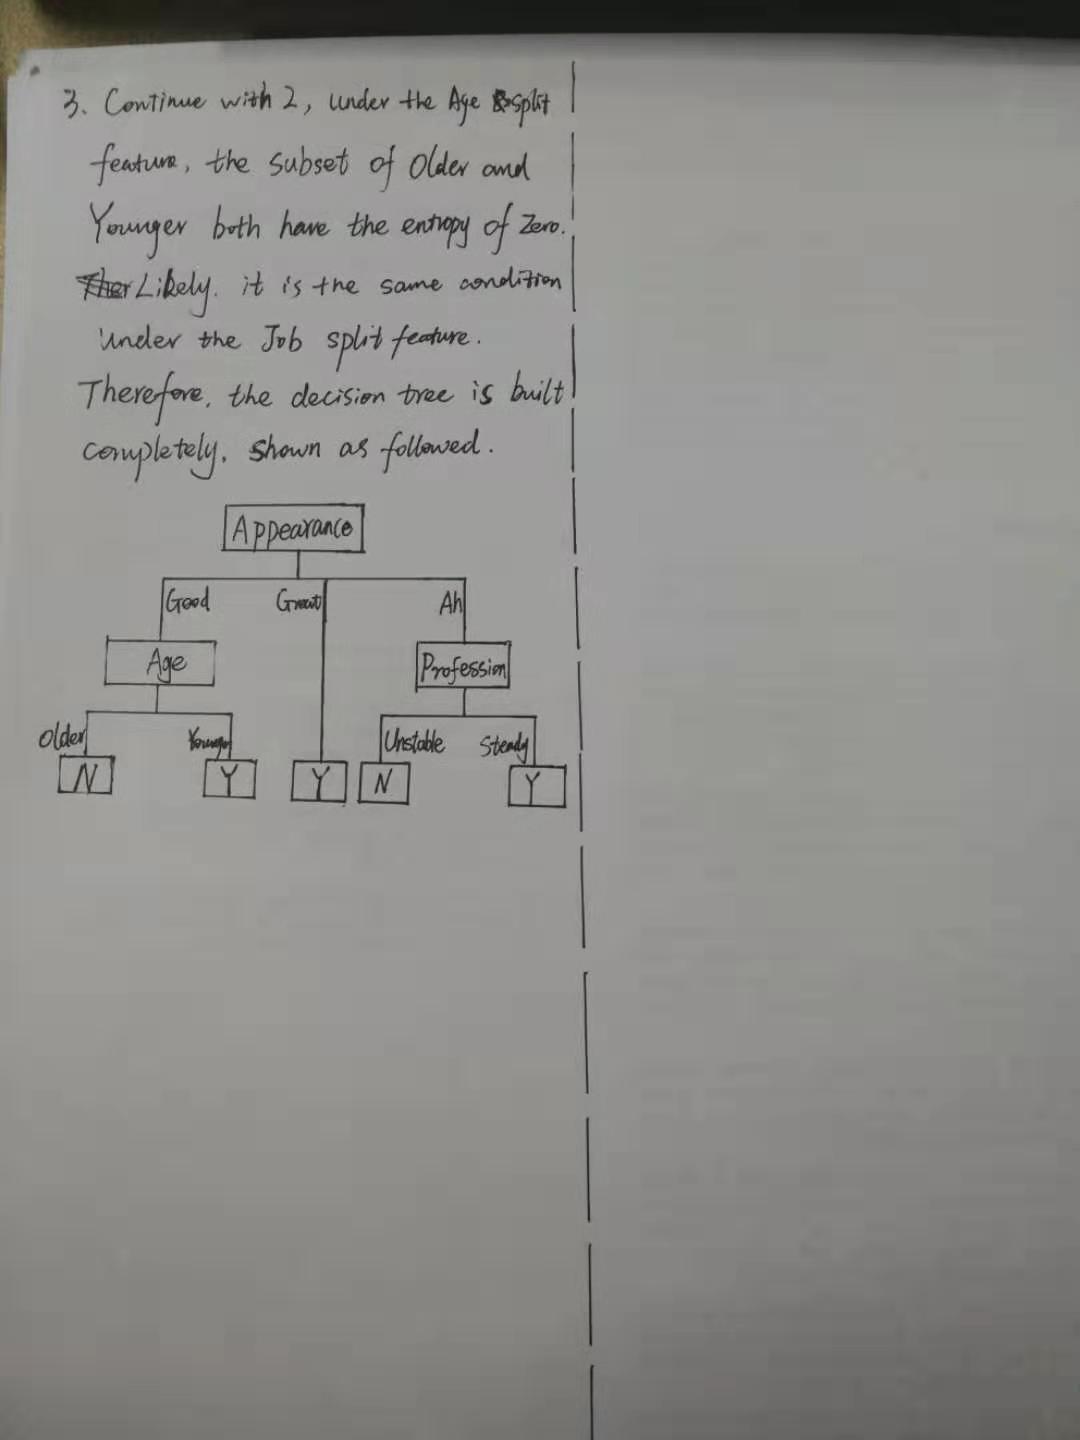 3. Continue with 2, under the Age split
feature, the subset of Older and
Younger both have the entropy of Zero.
Likely. it is the same condition
under the Job split feature.
Therefore, the decision tree is built
completely, shown as followed.
Appearance
Good Great Ah
Age Profession
Older Younger Unstable Steady
N Y Y N Y